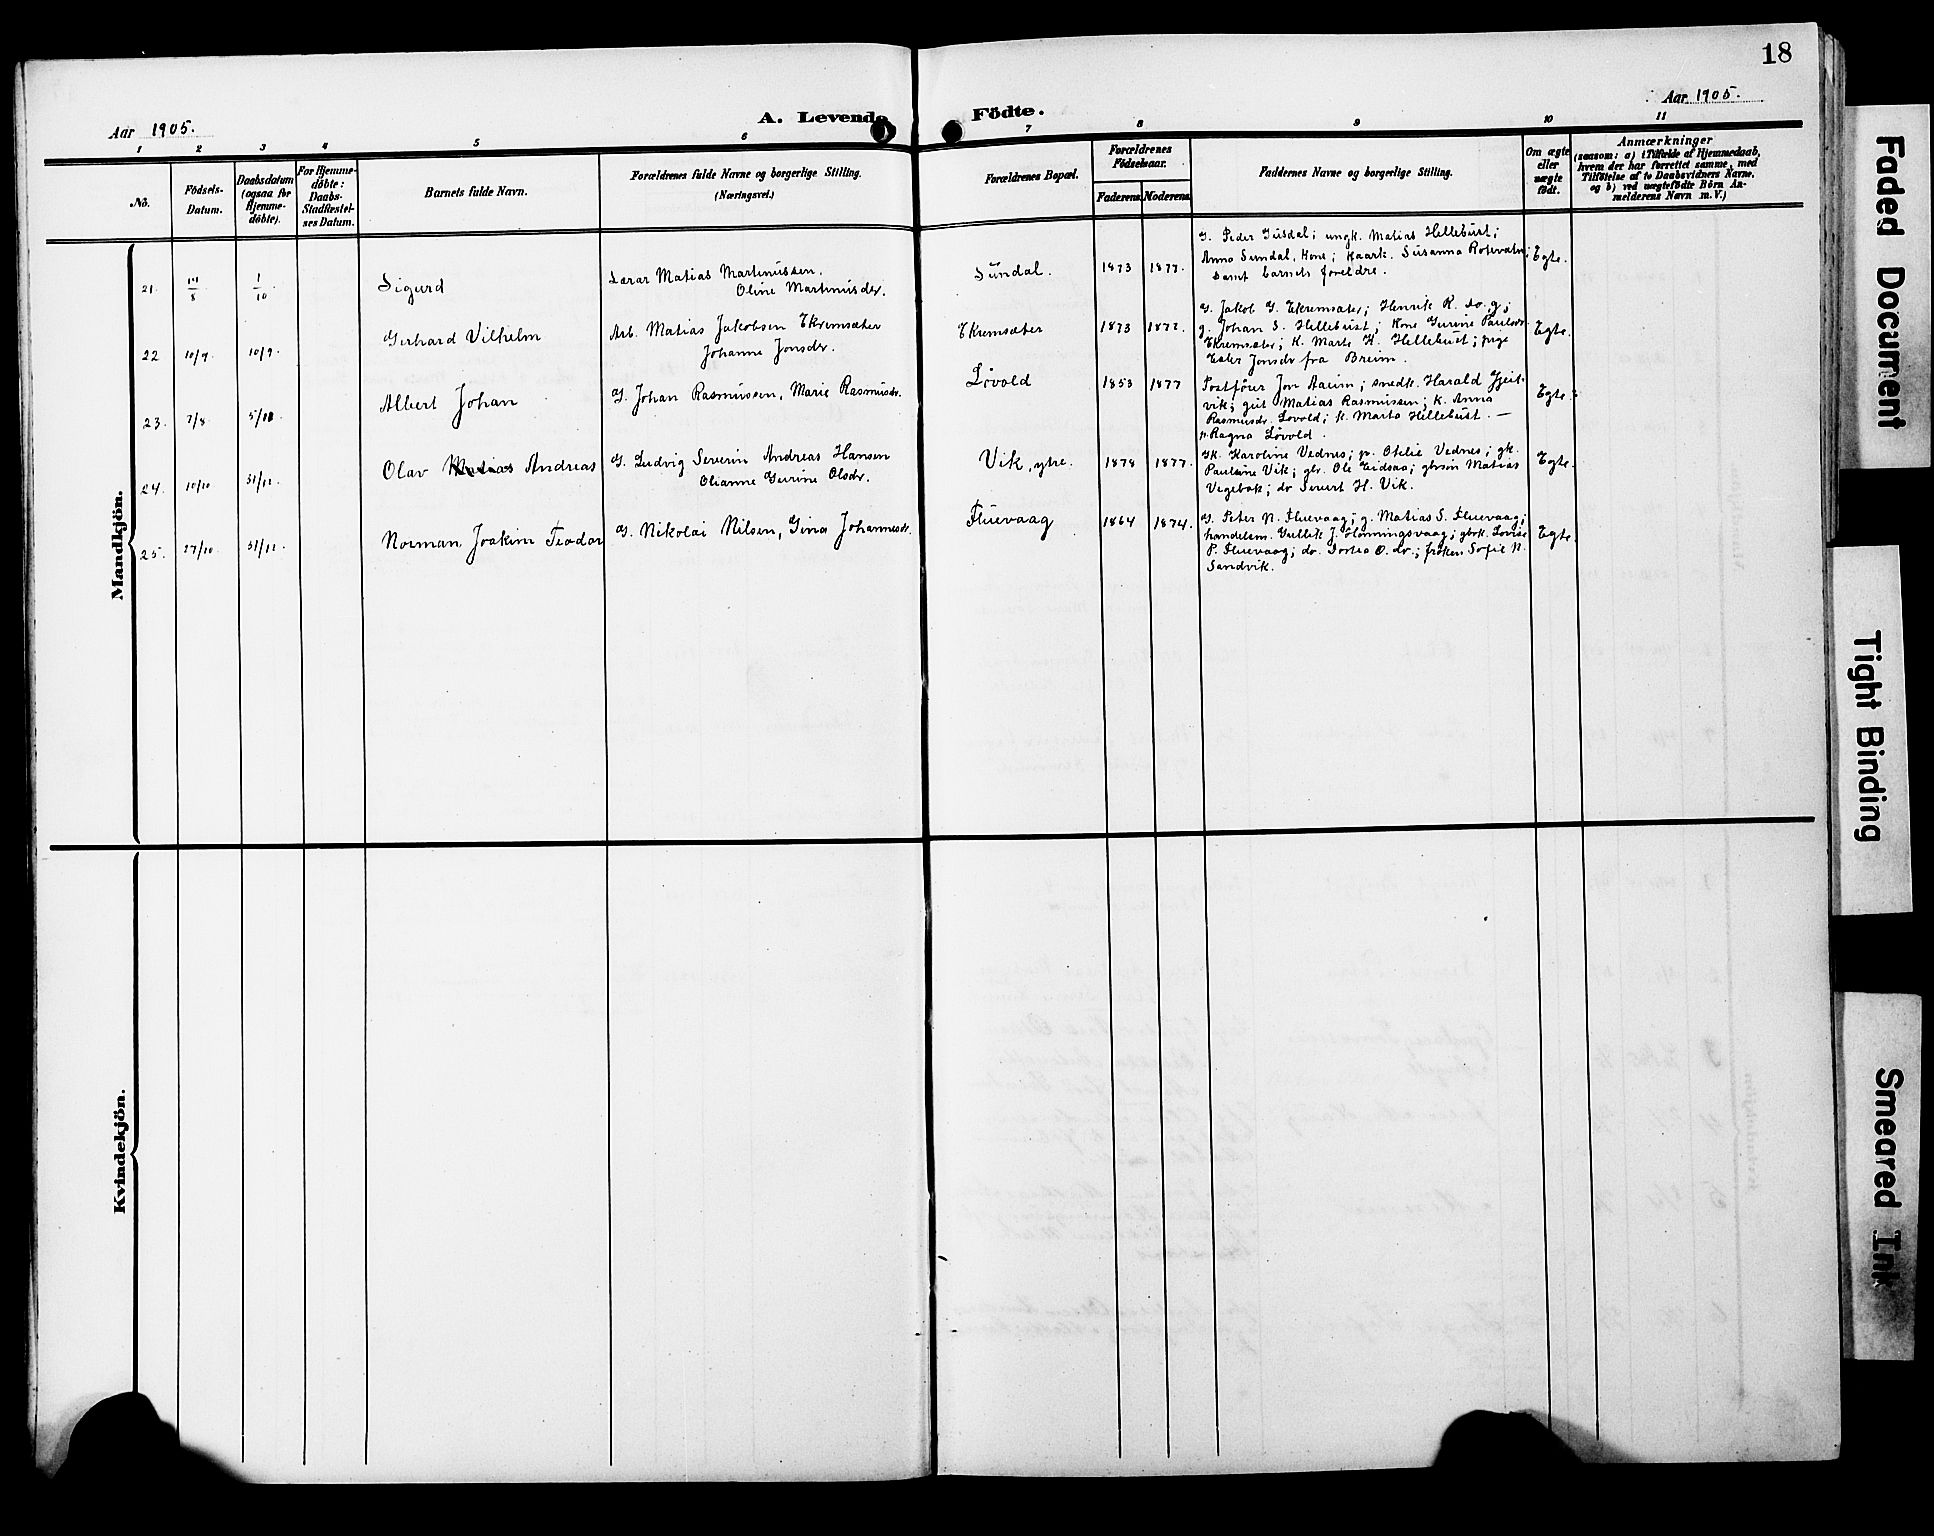 18
Aar 1905.
A. Levende Födte.
Aar 1905.
1 2 3 4 5 6 7 8 9 10 11
No.
Födsels-
Datum.
Daabsdatum
(ogsaa for
Hjemme-
döbte).
For Hjemme-
döbte:
Daabs-
Stadfæstel-
ses Datum.
Barnets fulde Navn.
Forældrenes fulde Navne og borgerlige Stilling.
(Næringsvei.)
Forældrenes Bopæl.
Forældrenes
Födselsaar.
Faderens.
Moderens.
Faddernes Navne og borgerlige Stilling.
Om ægte
eller
uægte
födt.
Anmærkninger
(saasom: a) i Tilfælde af Hjemmedaab,
hvem der har forrettet samme, med
Tilföielse af to Daabsvidners Navne,
og b) ved uægtefödte Börn An-
melderens Navn m. V.)
Mandkjön.
21. 14/8 1/10 Sigurd
Lærar Matias Martinussen,
Oline Martinusdr.
Sundal. 1873 1877.
G. Peder Gusdal; ungk. Matias Hellebust;
Anna Sundal, Kone; kaark. Susanna Rotevatn;
samt barnets foreldre.
Egte.
22 10/9 10/9 Gerhard Vilhelm
Arb. Matias Jakobsen Ekremsæter
Johanne Jonsdr.
Ekremsæter 1873 1872.
G. Jakob G. Ekremsæter; Henrik R. do. g;
g. Johan S. Hellebust; Kone Gurine Paulsdr
Ekremsæter; K. Marte H. Hellebust; pige
Ester Jonsdr fra Breim.
Egte.
23. 7/8 5/10 Albert Johan
G. Johan Rasmussen, Marie Rasmusdr.
Løvold 1853 1877
Postfører Jon Aaeim; smedk. Harald Gjeit-
vik; gut Matias Rasmussen; k. Anna
Rasmusdr. Løvold; k. Marta Hellebust. —
p. Ragna Løvold.
Egte.
24. 10/10 31/12. Olav Matias Andreas
G. Ludvig Severin Andreas Hansen
Olianne Gurine Olsdr.
Vik, ytre. 1878 1877.
Gk. Karoline Vednes; p. Otelie Vednes; gk.
Pauline Vik; gbr. Ole Eidsaas; gbrsøn Matias
Vegebak; do Sivert H. Vik.
Egte.
25. 27/10 31/12. Norman Joakim Teodor
G. Nikolai Nilsen, Gina Johannesdr.
Fluevaag 1864 1874.
G. Peter N. Fluevaag; g. Matias S. Fluevaag;
handelsm. Gullik J. Flømmingsvaag; gbrk. Lovise
P. Fluevaag; do. Dortea O. do.; frøken Sofie N.
Sandvik.
Egte.
Kvindekjön.
Faded Document
Tight Binding
Smeared Ink